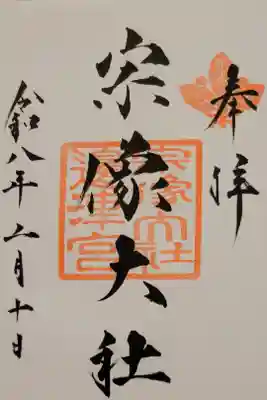 奉拝
宗像大社
宗像大社
邊津宮
令和八年二月十日